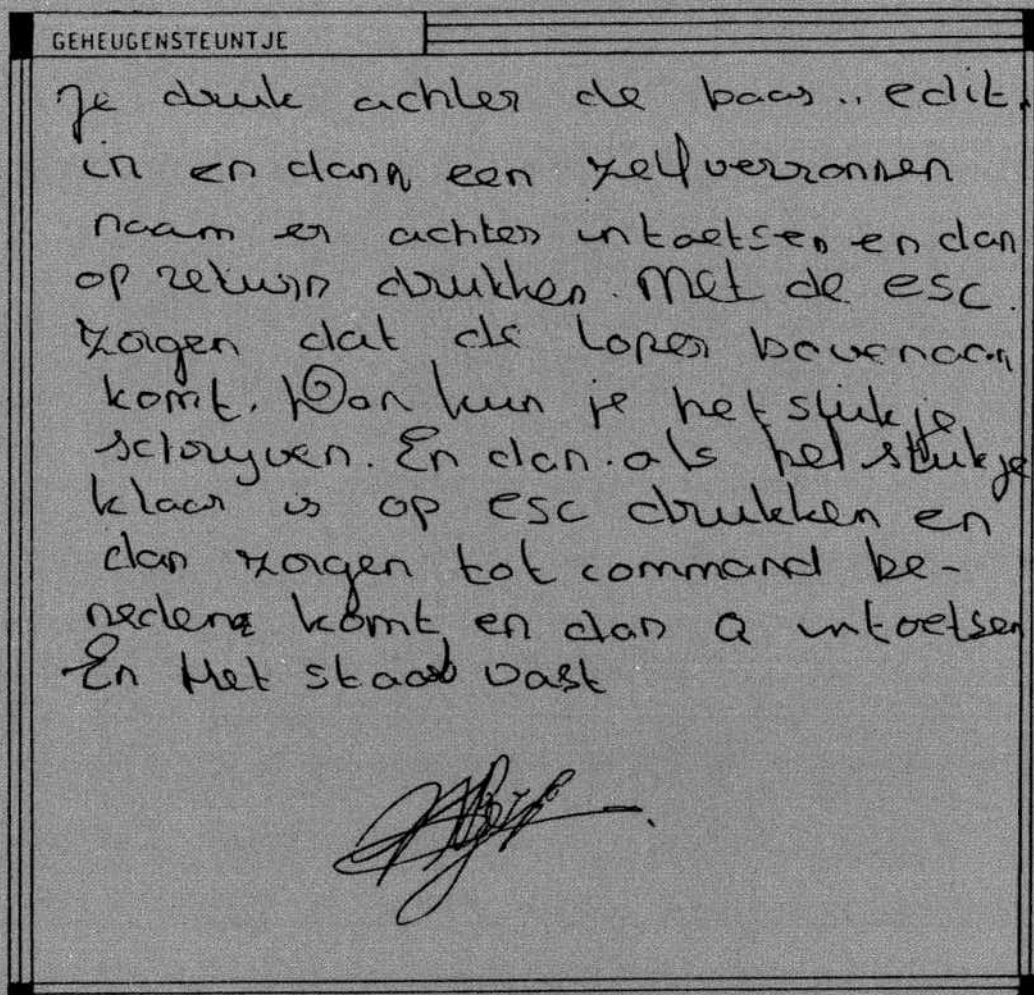 GEHEUGENSTEUNTJE
Je druk achter de baas .. edit.
in en dann een zelfverzonnen
naam er achter intoetsen en dan
op return drukken. Met de esc.
zorgen dat de loper bovenaan
komt. Dan kun je het stukje
schryven. En dan als het stukje
klaar is op esc drukken en
dan zorgen tot command be-
neden komt en dan Q intoetsen
En Het staat vast